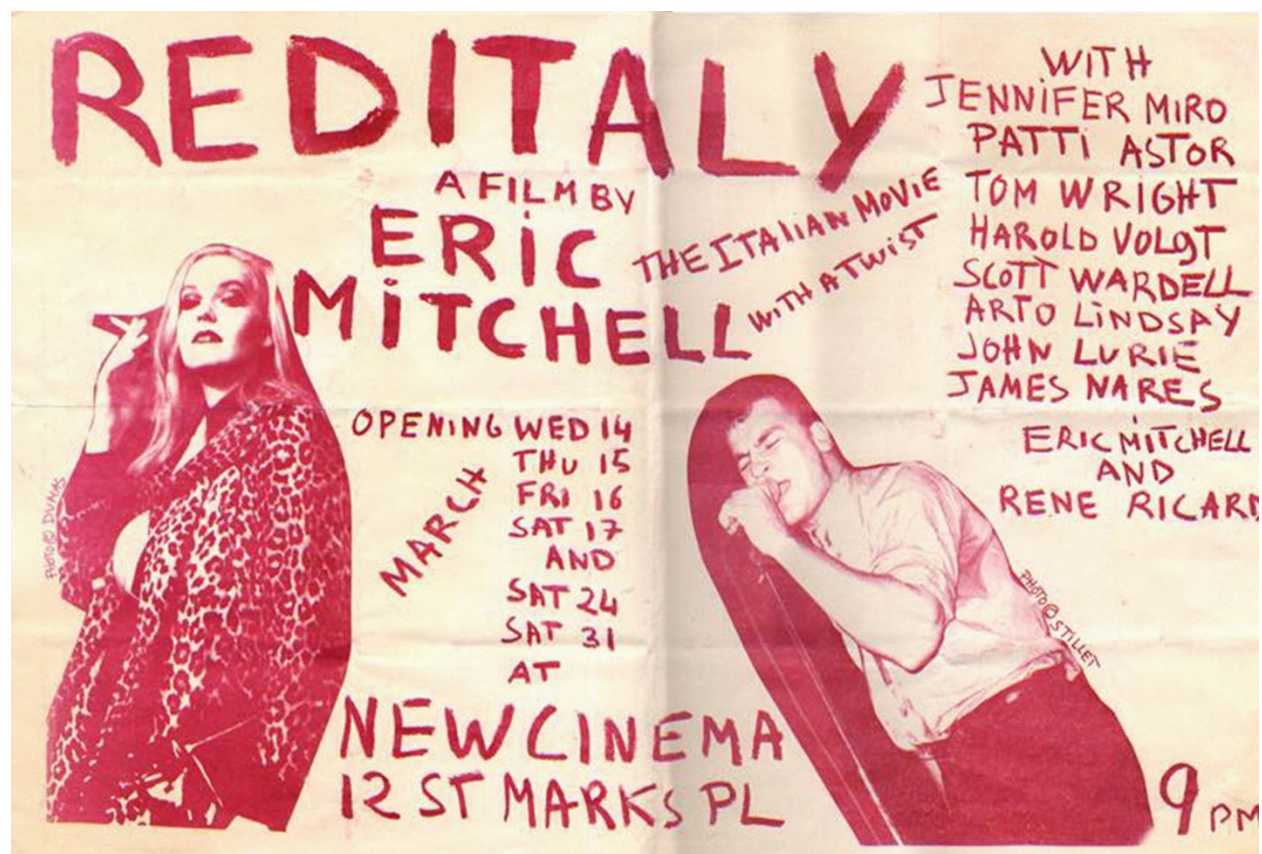 REDITALY
A FILM BY
ERIC
MITCHELL
THE ITALIAN MOVIE
WITH A TWIST
WITH
JENNIFER MIRO
PATTI ASTOR
TOM WRIGHT
HAROLD VOLGT
SCOTT WARDELL
ARTO LINDSAY
JOHN LURIE
JAMES NARES
ERIC MITCHELL
AND
RENE RICARD
OPENING WED 14
THU 15
FRI 16
SAT 17
AND
SAT 24
SAT 31
AT
MARCH
NEW CINEMA
12 ST MARKS PL
9 PM
PHOTO © DUNAS
PHOTO © STILLET